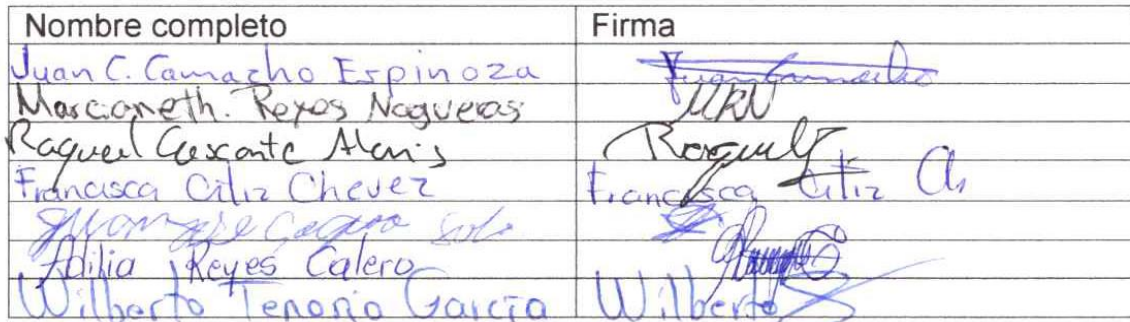 Nombre completo Firma
Juan C. Camacho Espinoza Juan Camacho
Marcioneth. Reyes Nogueras MRN
Raquel Cascante Alanis Raquel
Francisca Citiz Chevez Francisca Citiz Ch
Solis
Adilia Reyes Calero
Wilberto Tenorio García Wilberto